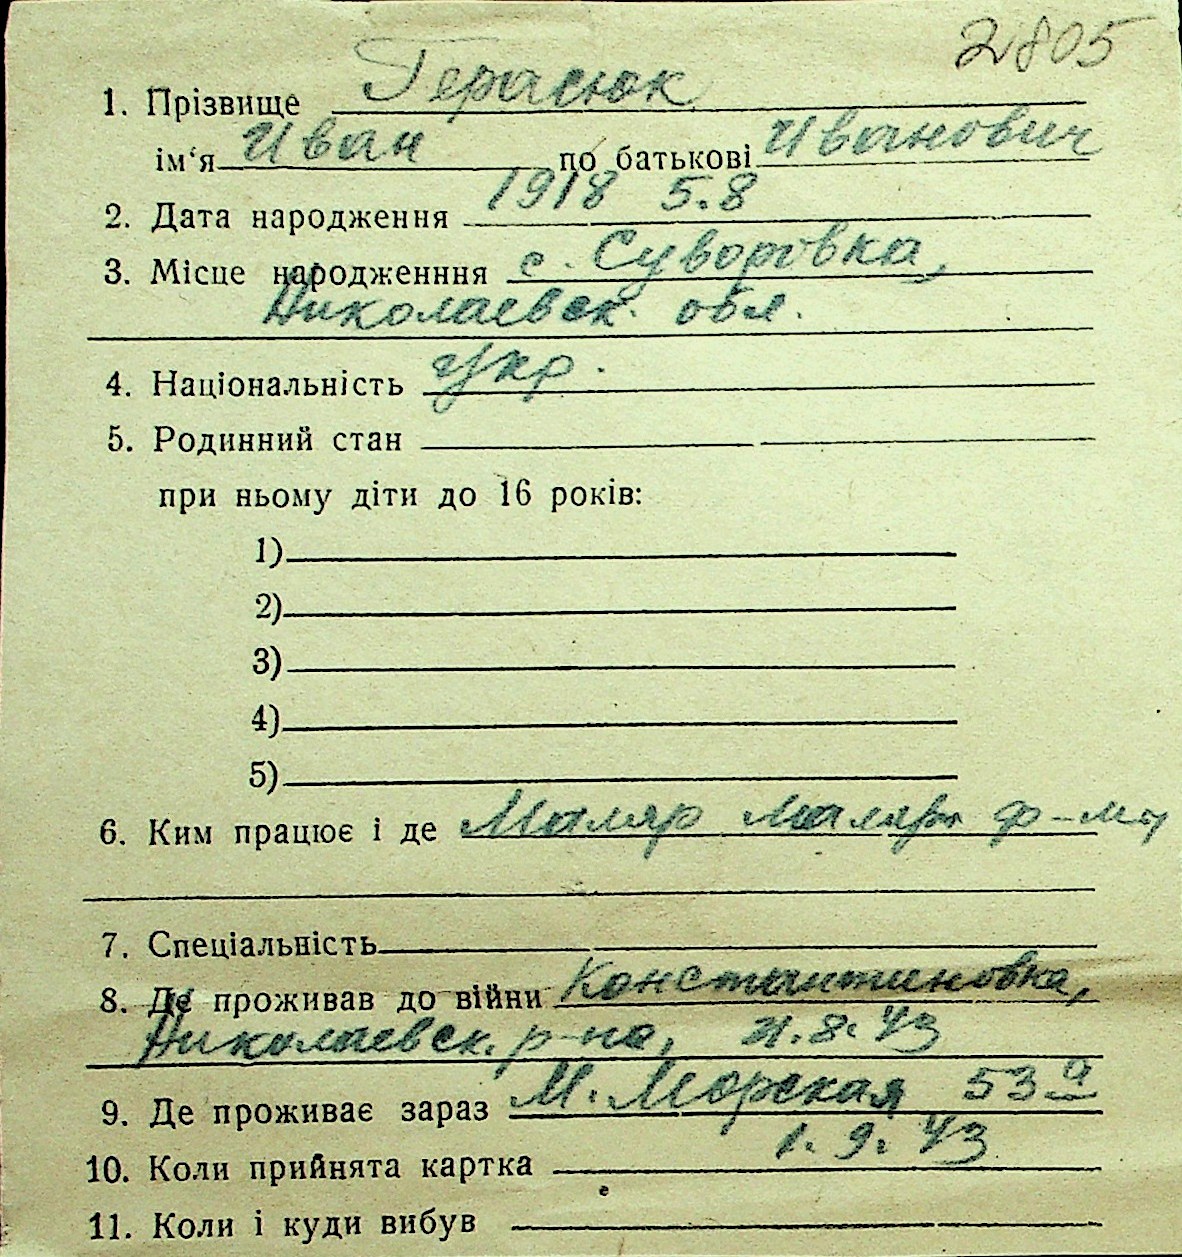 2805
1. Прізвище Герасюк
ім‘я Иван по батькові Иванович
2. Дата народження 1918 5.8
3. Місце народженння с. Суворовка,
Николаевск. обл.
4. Національність Укр.
5. Родинний стан
при ньому діти до 16 років:
1)
2)
3)
4)
5)
6. Ким працює і де Маляр
7. Спеціальність
8. Де проживав до війни Константиновка,
Николаевск. р-на, 8. 43
9. Де проживає зараз М. Морская 53 а
10. Коли прийнята картка 1. 9. 43
11. Коли і куди вибув